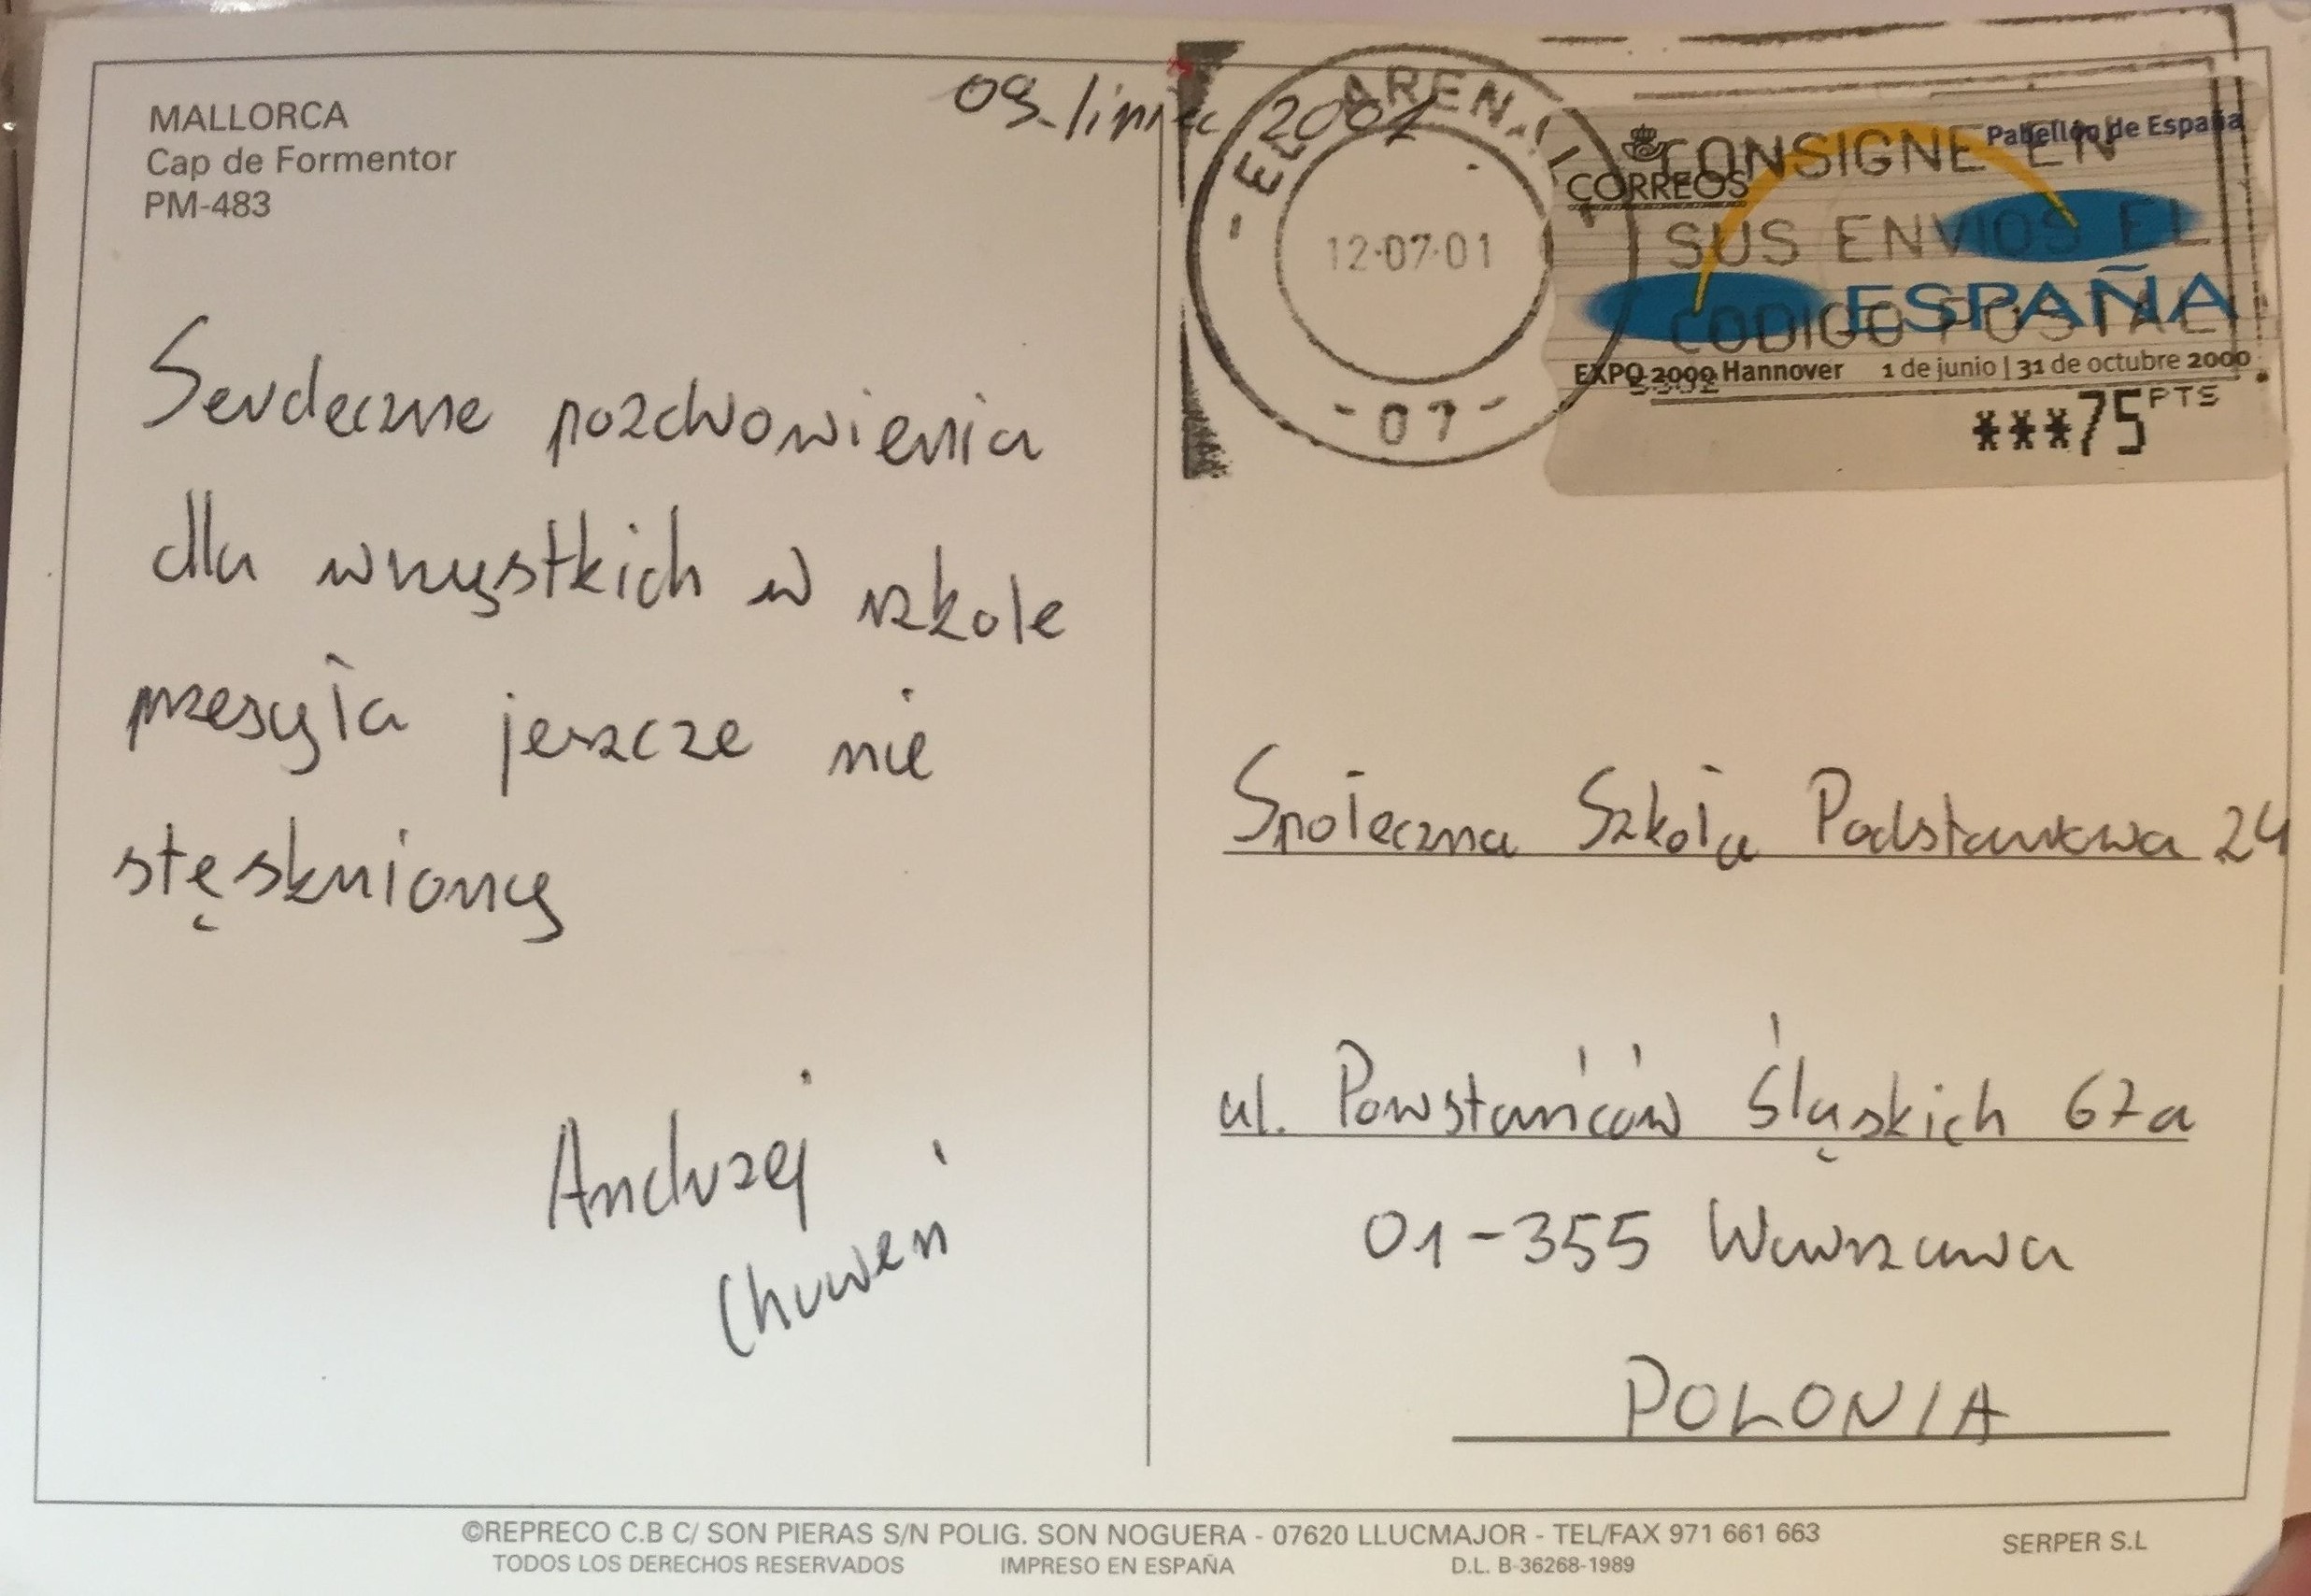 MALLORCA
Cap de Formentor
PM-483
09. lipiec 2001
Serdeczne pozdrowienia
dla wszystkich w szkole
przesyła jeszcze nie
stęskniony
Andrzej
Chuweń
EL ARENAL
12·07·01
- 07 -
CORREOS
Pabellón de España
CONSIGNE EN
SUS ENVIOS EL
CODIGO POSTAL
ESPAÑA
EXPO 2000 Hannover 1 de junio | 31 de octubre 2000
***75 PTS
Społeczna Szkoła Podstawowa 24
ul. Powstańców Śląskich 67a
01-355 Warszawa
POLONIA
©REPRECO C.B C/ SON PIERAS S/N POLIG. SON NOGUERA - 07620 LLUCMAJOR - TEL/FAX 971 661 663
TODOS LOS DERECHOS RESERVADOS IMPRESO EN ESPAÑA D.L. B-36268-1989
SERPER S.L